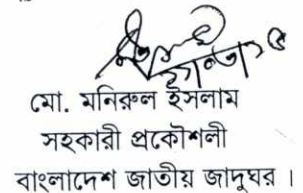 মো. মনিরুল ইসলাম
সহকারী প্রকৌশলী
বাংলাদেশ জাতীয় জাদুঘর ।